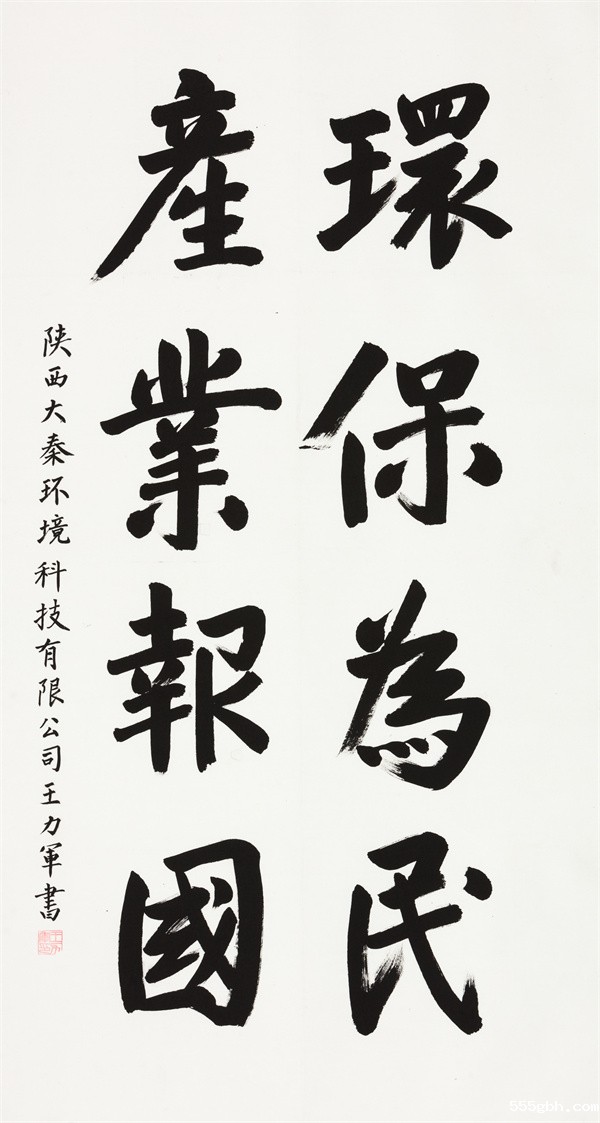 環保為民
産業報國
陕西大秦环境科技有限公司王力軍書
555gbh.com